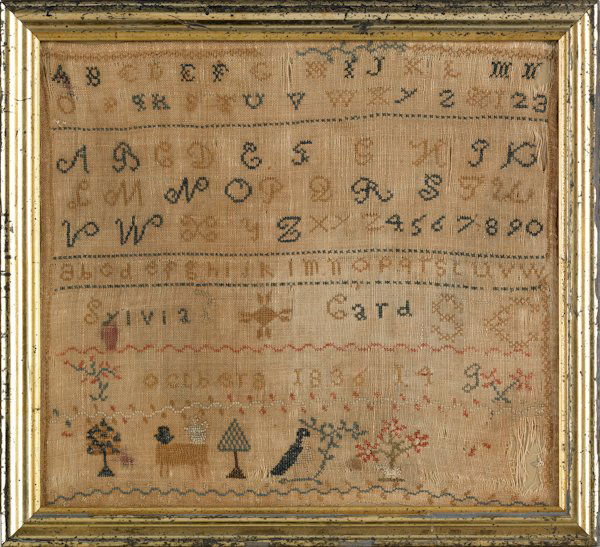 A B C D E F G H I J K L M N
O P Q R S T U V W X Y Z 1 2 3
A B C D E F G H I K
L M N O P Q R S T U
V W X Y Z X Y Z 4 5 6 7 8 9 0
a b c d e f g h i j k l m n o p q r s t u v w
Sylvia Card
octbers 1836 14